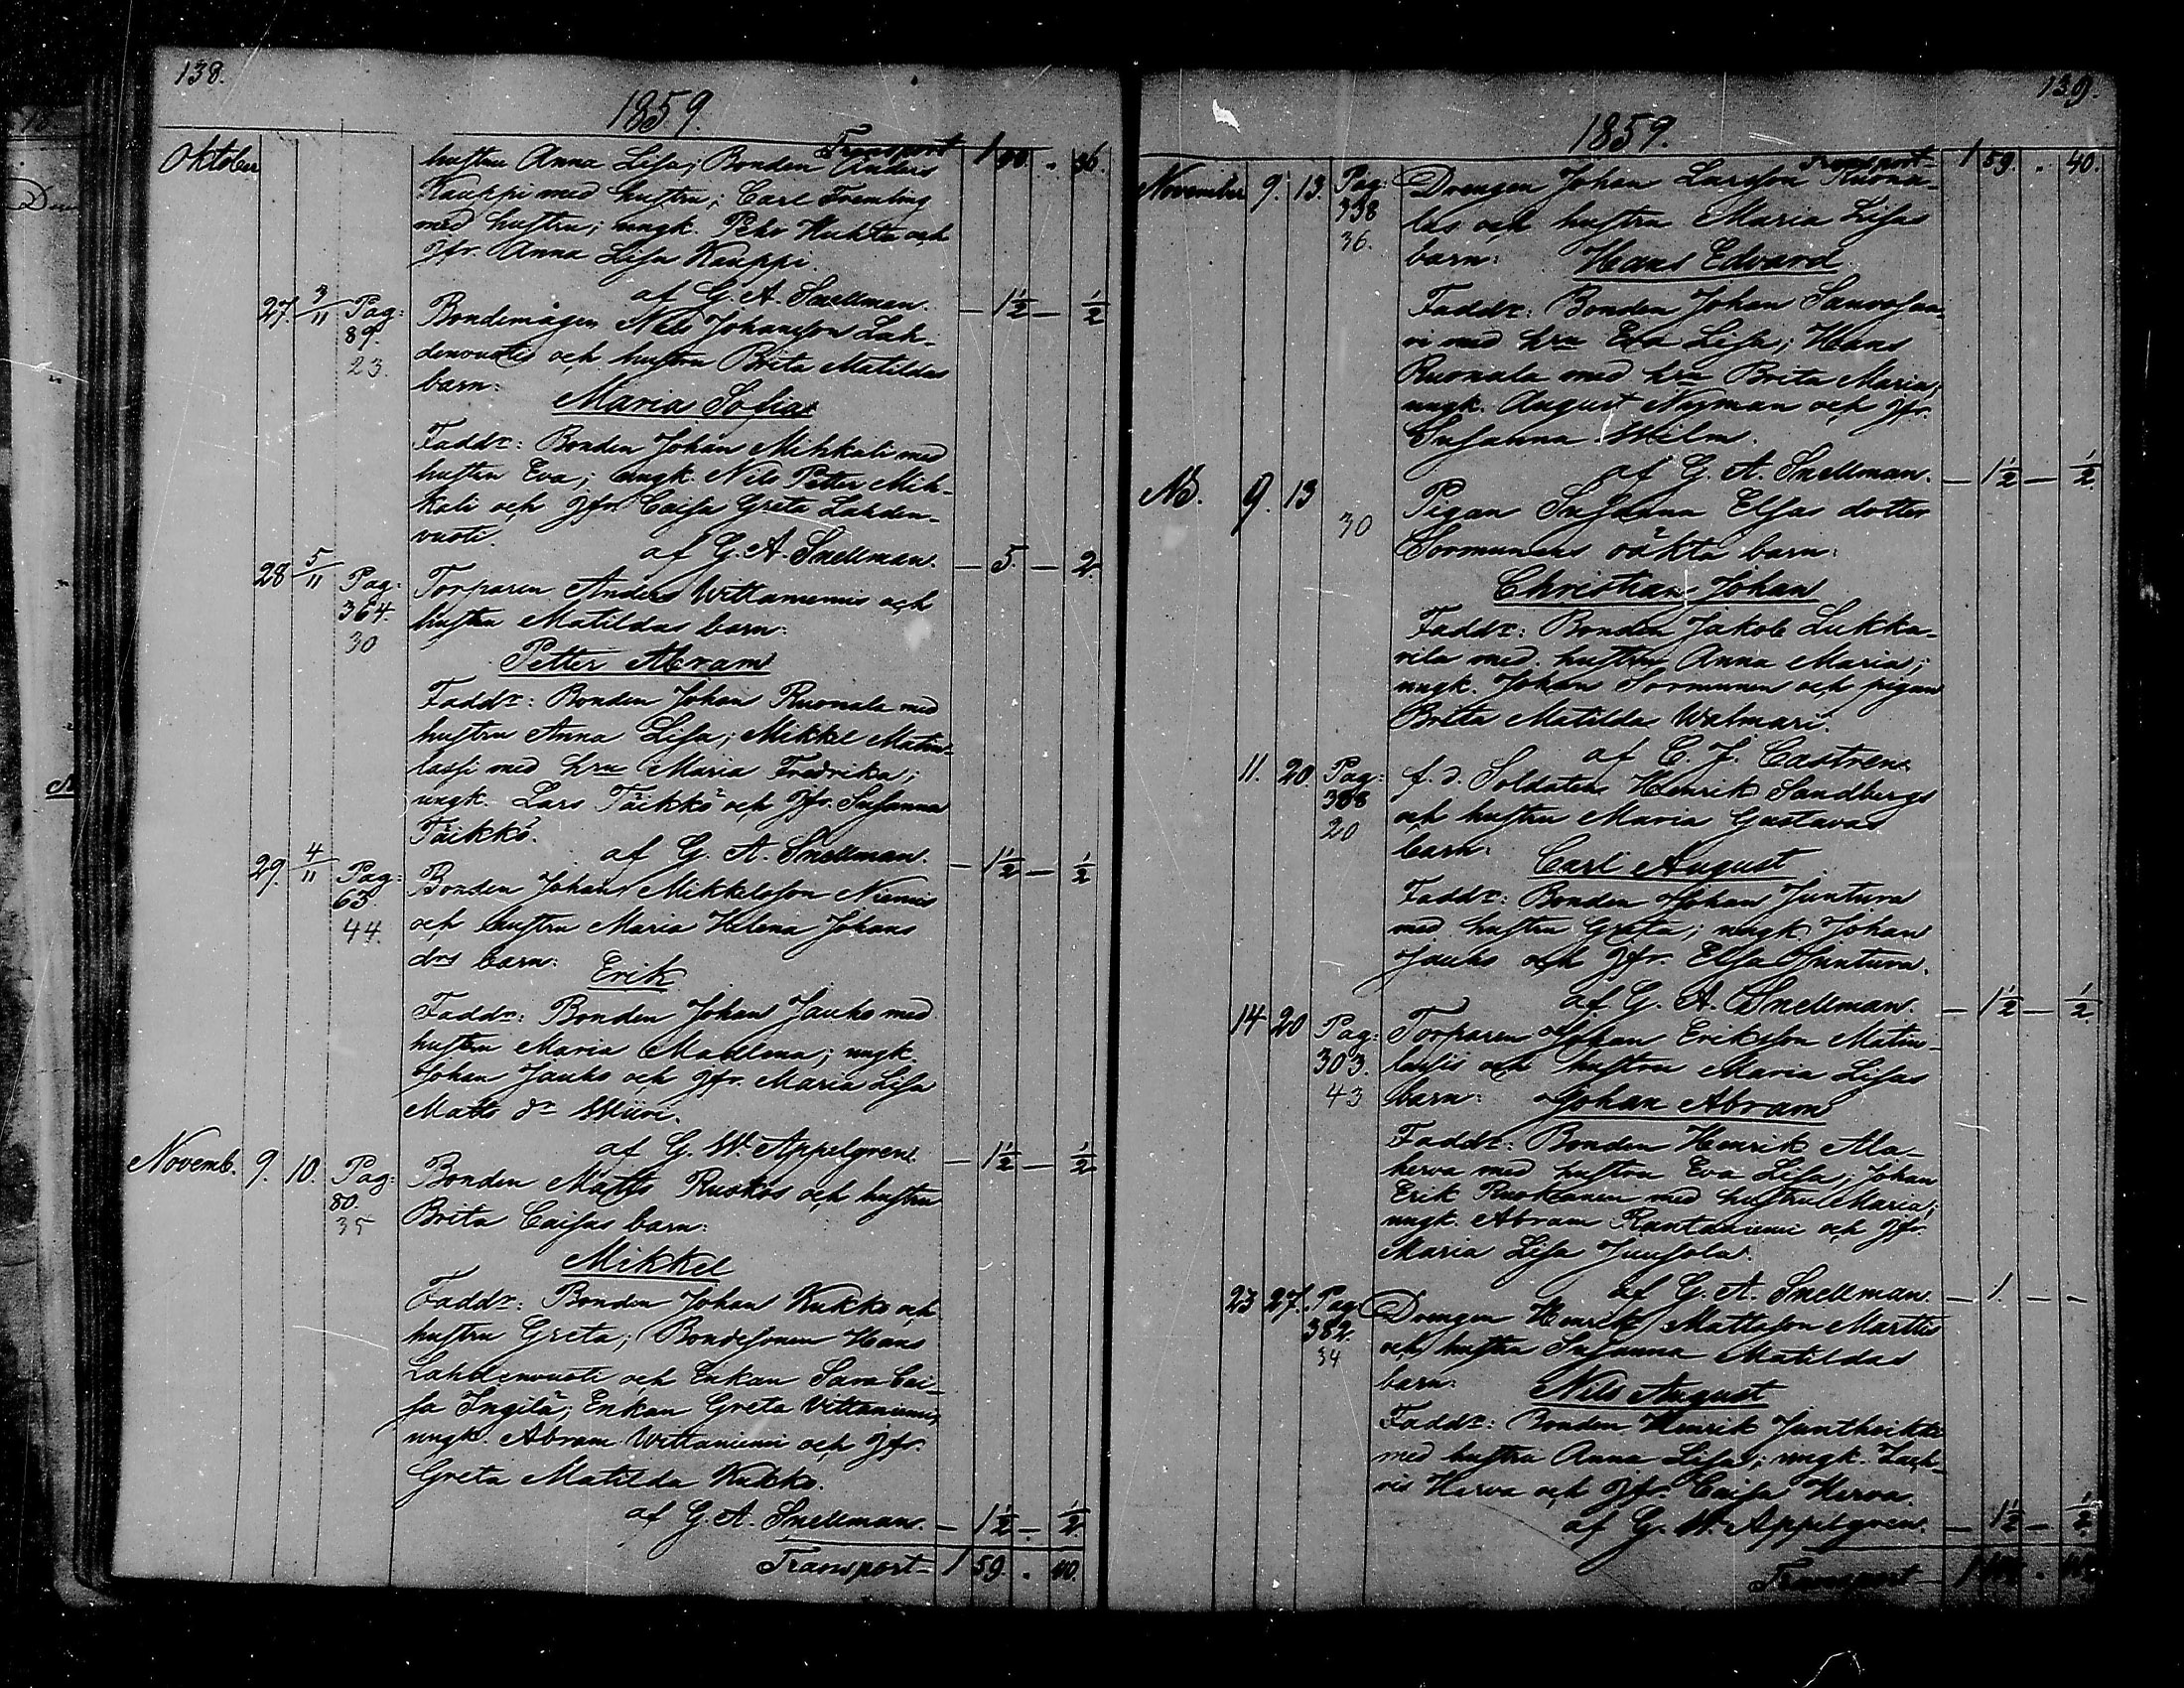 138.
1859.
Oktober
Transport 1
hustru Anna Lisa; Bonden Anders
Kauppi med hustru; Carl Fremling
med hustru; ungk. Pehr Huhta och
Jfr. Anna Lisa Kauppi.
af G. A. Snellman. — 1½ — ½
27. 3/11 Pag: 89. 23.
Bondemågen Nils Johansson Lah-
denvuotis och hustru Brita Matildas
barn:
Maria Sofia
Faddr: Bonden Johan Mihkali med
hustru Eva; ungk. Nils Petter Mih-
kali och Jfr Caisa Greta Lahden-
vuoti.
af G. A. Snellman. — 5. — 2.
28 5/11 Pag: 364. 30
Torparen Anders Wittaniemis och
hustru Matildas barn:
Petter Abram
Faddr: Bonden Johan Ruonala med
hustru Anna Lisa; Mikkel Matin-
lassi med hru Maria Fredrika;
ungk. Lars Täikkö och Jfr. Susanna
Täikkö.
af G. A. Snellman. — 1½ — ½
29. 4/11 Pag: 63. 44.
Bonden Johan Mikkelsson Niemis
och hustru Maria Helena Johans
drs barn:
Erik
Faddr: Bonden Johan Jauho med
hustru Maria Madlena; ungk.
Johan Jauho och Jfr. Maria Lisa
Matts dr
af G. W. Appelgren. — 1½ — ½
Novemb. 9. 10. Pag: 80. 35
Bonden Matts Ruokos och hustru
Brita Caisas barn:
Mikkel
Faddr: Bonden Johan Kukko och
hustru Greta; Bondesonen Hans
Lahdenvuoti och Enkan Sara Cai-
sa Ingilä; Enkan Greta Vittaniemi,
ungk. Abram Wittaniemi och Jfr.
Greta Matilda Kukko.
af G. A. Snellman. — 1½ — ½
Transport 1 59 . 40.
139.
1859.
Transport 1 59. . 40.
November 9. 13. Pag: 338 36.
Drengen Johan Larsson Ruona-
las och hustru Maria Lisas
barn: Hans Edvard
Faddr: Bonden Johan
vi med hru Eva Lisa; Hans
Ruonala med hru Brita Maria;
ungk. August Nyman och Jfr.
Susanna
af G. A. Snellman. — 1½ — ½.
9. 13 30
Pigan Susanna Elsas dotter
Sormunens oäkta barn:
Christian Johan
Faddr: Bonden Jakob Lukka-
rila med hustru Anna Maria;
ungk. Johan Sormunen och pigan
Brita Matilda Walmari.
af C. J. Castren.
11. 20. Pag: 388 20
f. d. Soldaten Henrik Sandbergs
och hustru Maria Gustavas
barn: Carl August
Faddr: Bonden Johan Juntura
med hustru Greta; ungk Johan
Jauho och Jfr. Elsa Juntura.
af G. A. Snellman. — 1½ — ½.
14 20 Pag: 303. 43
Torparen Johan Eriksson Matin-
lassis och hustru Maria Lisas
barn: Johan Abram
Faddr: Bonden Henrik Ala-
herva med hustru Eva Lisa; Johan
Erik Ruokanen med hustru Maria;
ungk. Abram Rantaniemi och Jfr.
Maria Lisa Juusola.
af G. A. Snellman — 1. — —
23 27. Pag: 382. 34
Drengen Henrik Mattsson Marttis
och hustru Susanna Matildas
barn: Nils August
Faddr: Bonden Henrik
med hustru Anna Lisa; ungk. Zach-
ris Herva och Jfr. Caisa Herva.
af G. W. Appelgren. — 1½ — ½.
Transport